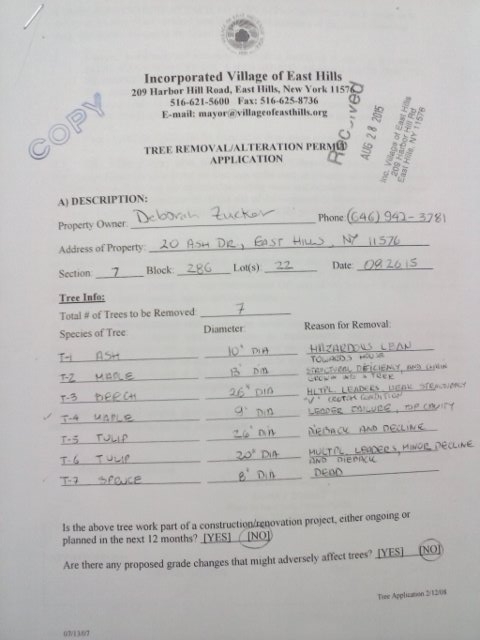 Incorporated Village of East Hills
209 Harbor Hill Road, East Hills, New York 11576
516-621-5600 Fax: 516-625-8736
E-mail: mayor@villageofeasthills.org
COPY
Received
AUG 28 2015
Inc. Village of East Hills
209 Harbor Hill Rd
East Hills, NY 11576
TREE REMOVAL/ALTERATION PERMIT
APPLICATION
A) DESCRIPTION:
Property Owner: Deborah Zucker Phone (646) 942-3781
Address of Property: 20 ASH DR, EAST HILLS, NY 11576
Section: 7 Block: 286 Lot(s): 22 Date: 082615
Tree Info:
Total # of Trees to be Removed: 7
Species of Tree: Diameter: Reason for Removal:
T-1 ASH 10" DIA HAZARDOUS LEAN TOWARDS HOUSE
T-2 MAPLE 13" DIA STRUCTURAL DEFICIENCY, AND
T-3 BEECH 26" DIA MLTPL LEADERS WEAK STRUCTURALLY "V" CROTCH CONDITION
T-4 MAPLE 9" DIA LEADER FAILURE, TOP CAVITY
T-5 TULIP 26" DIA DIEBACK AND DECLINE
T-6 TULIP 20" DIA MULTPL LEADERS, MINOR DECLINE AND DIEBACK
T-7 SPRUCE 8" DIA DEAD
Is the above tree work part of a construction/renovation project, either ongoing or
planned in the next 12 months? [YES] [NO]
Are there any proposed grade changes that might adversely affect trees? [YES] [NO]
Tree Application 2/12/08
07/13/07